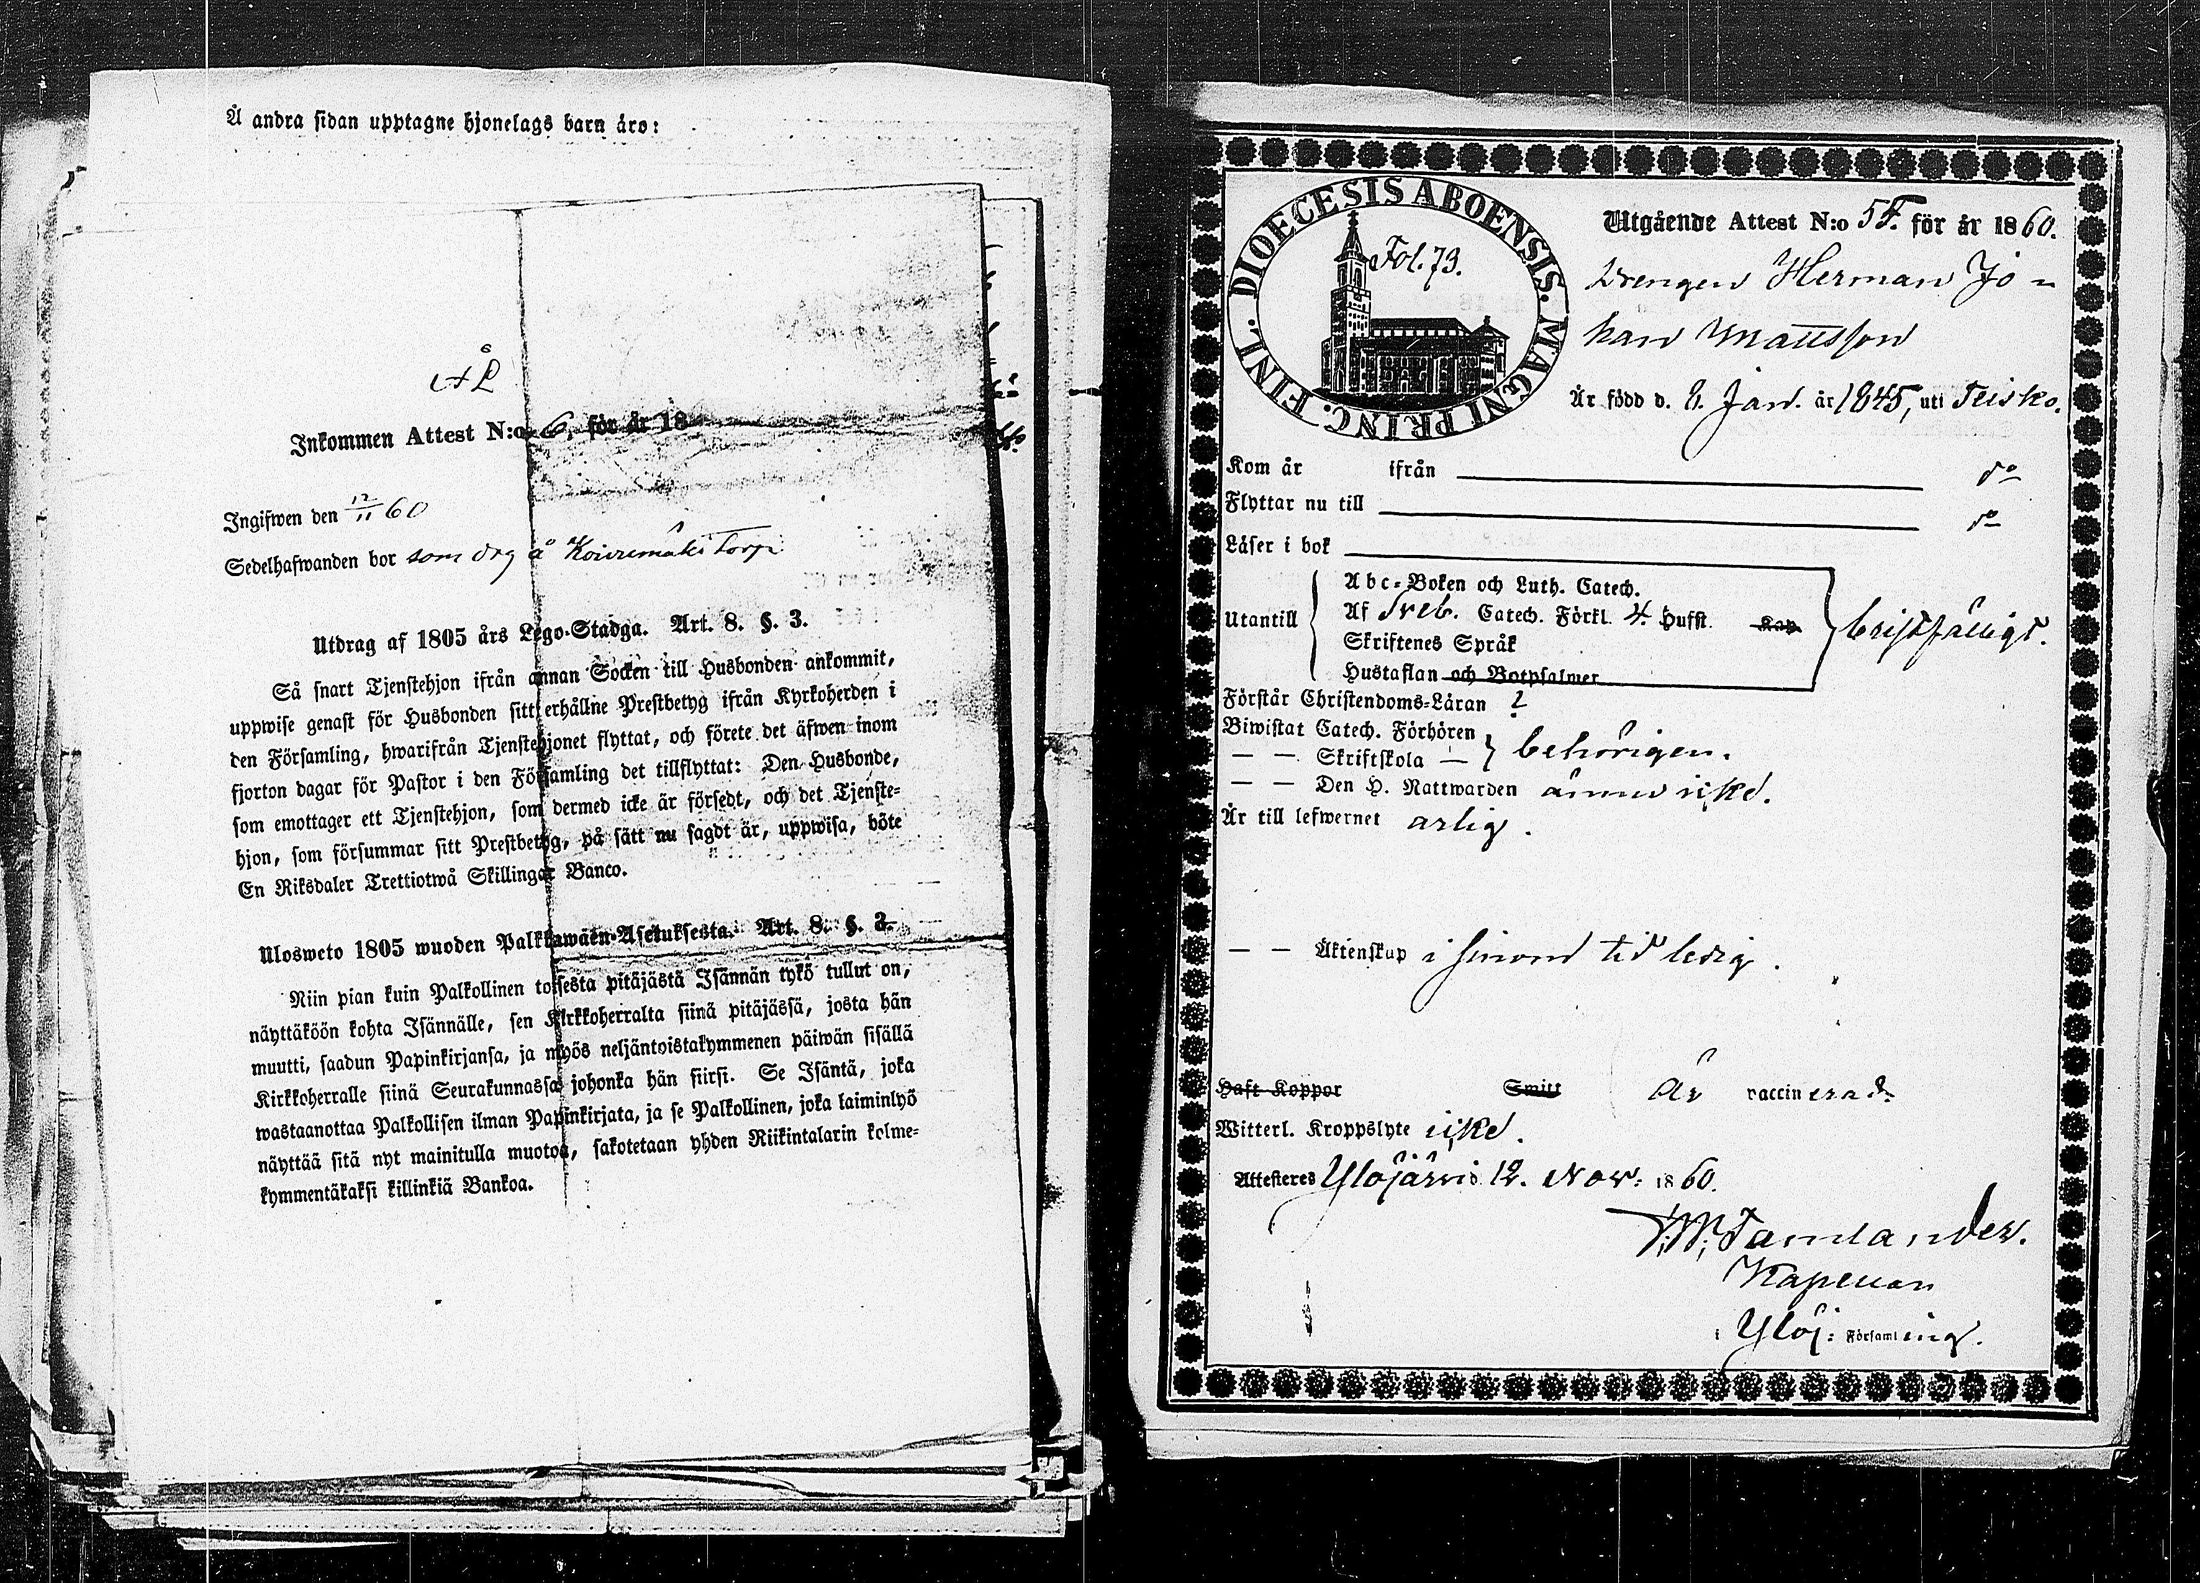 Å andra sidan upptagne hjonelags barn äro:
ÅL
Inkommen Attest N:o 6, för år 18
Ingifwen den 12/11 60
Sedelhafwanden bor som drg å Koivumäki Torp
Utdrag af 1805 års Lego-Stadga. Art. 8. §. 3.
Så snart Tjenstehjon ifrån annan Socken till Husbonden ankommit,
uppwise genast för Husbonden sitt erhållne Prestbetyg ifrån Kyrkoherden i
den Församling, hwarifrån Tjenstehjonet flyttat, och förete det äfwen inom
fjorton dagar för Pastor i den Församling det tillflyttat: Den Husbonde,
som emottager ett Tjenstehjon, som dermed icke är försedt, och det Tjenste-
hjon, som försummar sitt Prestbetyg, på sätt nu sagdt är, uppwisa, böte
En Riksdaler Trettiotwå Skillingar Banco.
Ulosweto 1805 wuoden Palkkawäen-Asetuksesta. Art. 8. §. 3.
Niin pian kuin Palkollinen toisesta pitäjästä Isännän tykö tullut on,
näyttäköön kohta Isännälle, sen Kirkkoherralta siinä pitäjässä, josta hän
muutti, saadun Papinkirjansa, ja myös neljäntoistakymmenen päiwän sisällä
Kirkkoherralle siinä Seurakunnassa johonka hän siirsi. Se Isäntä, joka
wastaanottaa Palkollisen ilman Papinkirjata, ja se Palkollinen, joka laiminlyö
näyttää sitä nyt mainitulla muotoa, sakotetaan yhden Riikintalarin kolme-
kymmentäkaksi killinkiä Bankoa.
DIOECESIS ABOENSIS. MAGNI PRINC. FINL.
Fol. 73.
Utgående Attest N:o för år 1860.
Drengen Herman Jo-
han Mattsson
Är född d. 8. Jan. år 1845, uti Teisko.
Kom år ifrån do
Flyttar nu till do
Läser i bok
Utantill
Abc-Boken och Luth. Catech.
Af Sveb. Catech. Förkl. 4. Hufst. Kap.
Skriftenes Språk
Hustaflan och Botpsalmer
bristfälligt.
Förstår Christendoms-Läran ?
Biwistat Catech. Förhören
— — Skriftskola — behörigen.
— — Den H. Nattwarden ännu icke.
Är till lefwernet ärlig.
— — Äktenskap i sinom tid ledig.
Haft Koppor Smitt Är vaccinerad.
Witterl. Kroppslyte icke.
Attesteres Ylöjärvi d. 12. Nov: 1860.
Tamlander.
Kapellan
i Ylöj: Församling.